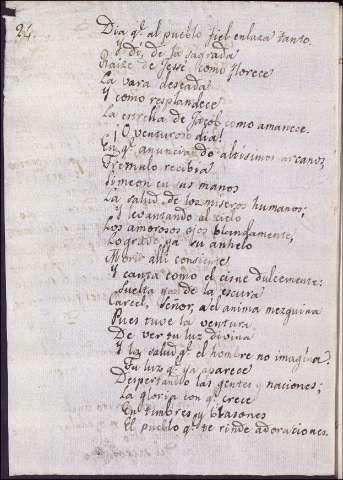 24.
Dia q.e al pueblo fiel enlaza tanto.
Y di, de la sagrada
Raize de Jesse como florece
La vara deseada
Y como resplandece
La estrella de Jacob como amanece.
¡O venturoso dia!
En q.e anunciando altisimos arcanos,
Tremulo recibia
Simeon en sus manos
La salud de los miseros humanos;
Y levantando al cielo
Los amorosos ojos blandamente,
Logrado ya su anhelo
Morir alli consiente
Y canta como el cisne dulcemente:
Suelta de la escura
Carcel, Señor, a el anima mezquina
Pues tuve la ventura
De ver tu luz divina
Y la salud q.e el hombre no imagina.
Tu luz q.e ya aparece
Despertando las gentes y naciones;
La gloria con q.e crece
En timbres y blasones
El pueblo q.e te rinde adoraciones.